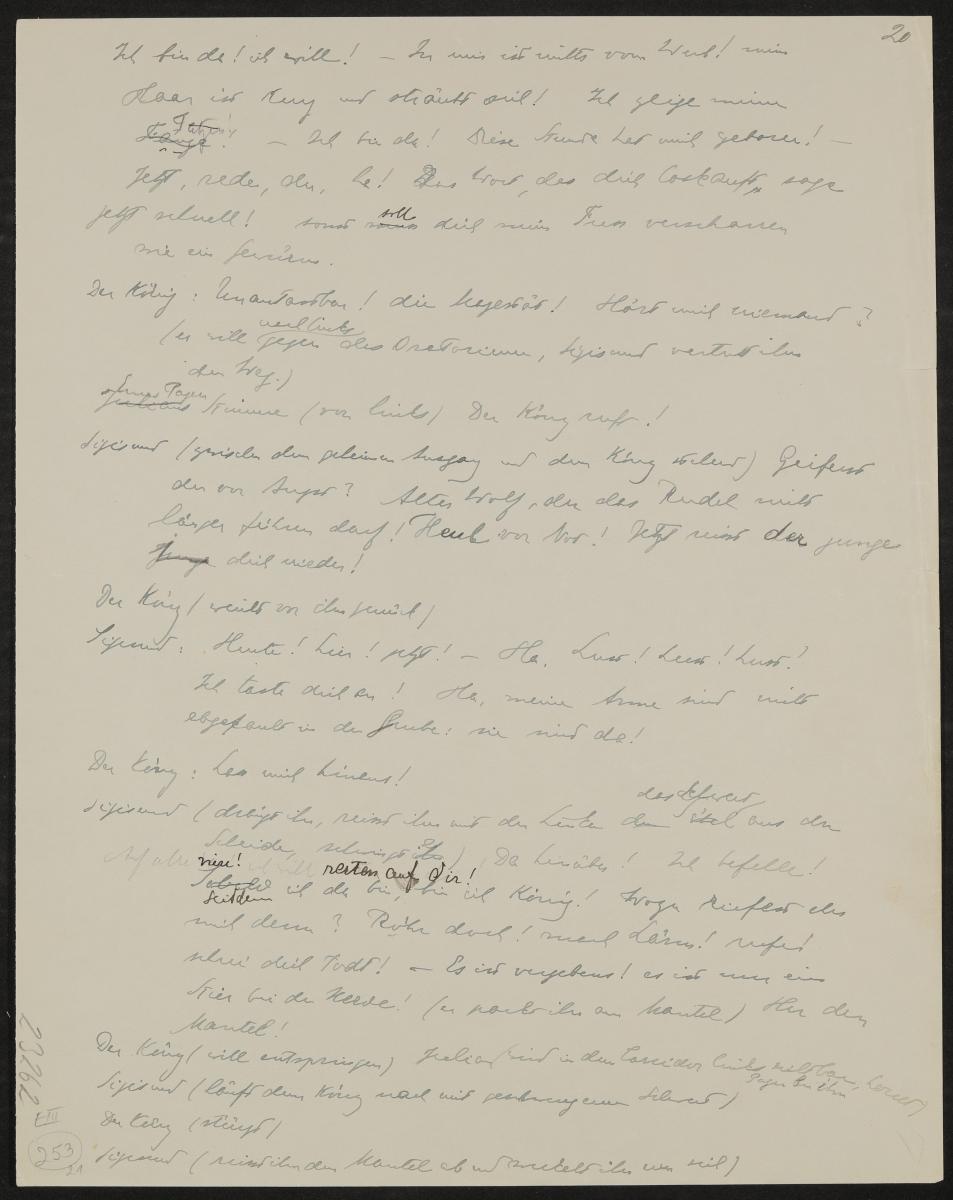 20
Ich bin da! ich will! – In mir ist nichts vom Weib! mein
Haar ist kurz und sträubt sich! Ich zeige meine
Tatzen!
Fänge! – Ich bin da! Diese Stunde hat mich geboren! –
Jetzt, rede, du, he! Das Wort, das dich loskauft, sage
jetzt schnell! sonst
soll
muss dich mein Fuss verscharren
wie ein Gewürm.
Der König: Unantastbar! die Majestät! Hört mich niemand?
nach links
(er will gegen das Oratorium, Sigismund vertritt ihm
den Weg.)
eines Pagen
Julians Stimme (von links) Der König ruft!
Sigismund (zwischen dem geheimen Ausgang und dem König stehend) Geiferst
du vor Angst? Alter Wolf, der das Rudel nicht
länger führen darf! Heul vor Not! Jetzt reisst der junge
Junge dich nieder!
Der König (weicht vor ihm zurück)
Sigismund: Heute! hier! jetzt! – Ha, Lust! Lust! Lust!
Ich taste dich an! Ha, meine Arme sind nicht
abgefault in der Grube: sie sind da!
Der König: Lass mich hinaus!
das Schwert
Sigismund (drängt ihn, reisst ihm mit der Linken den aus der
Scheide, schwingt es) Da hinüber! Ich befehle!
nieder! ich will rasten auf Dir!
Sobald ich da bin, bin ich König! Wozu riefest du
Seitdem
mich denn? Röhr doch! mach Lärm! rufe!
schrei dich todt! – Es ist vergebens! es ist nur ein
Stier bei der Herde! (er packt ihn am Mantel) Her den
Mantel!
Der König (will entspringen) Julian (wird in dem Corridor links sichtbar,
Page bei ihm
Sigismund (läuft dem König nach mit geschwungenem Schwert)
Der König (stürzt)
Sigismund (reisst ihm den Mantel ab und wickelt ihn um sich)
23262
E III
253
21